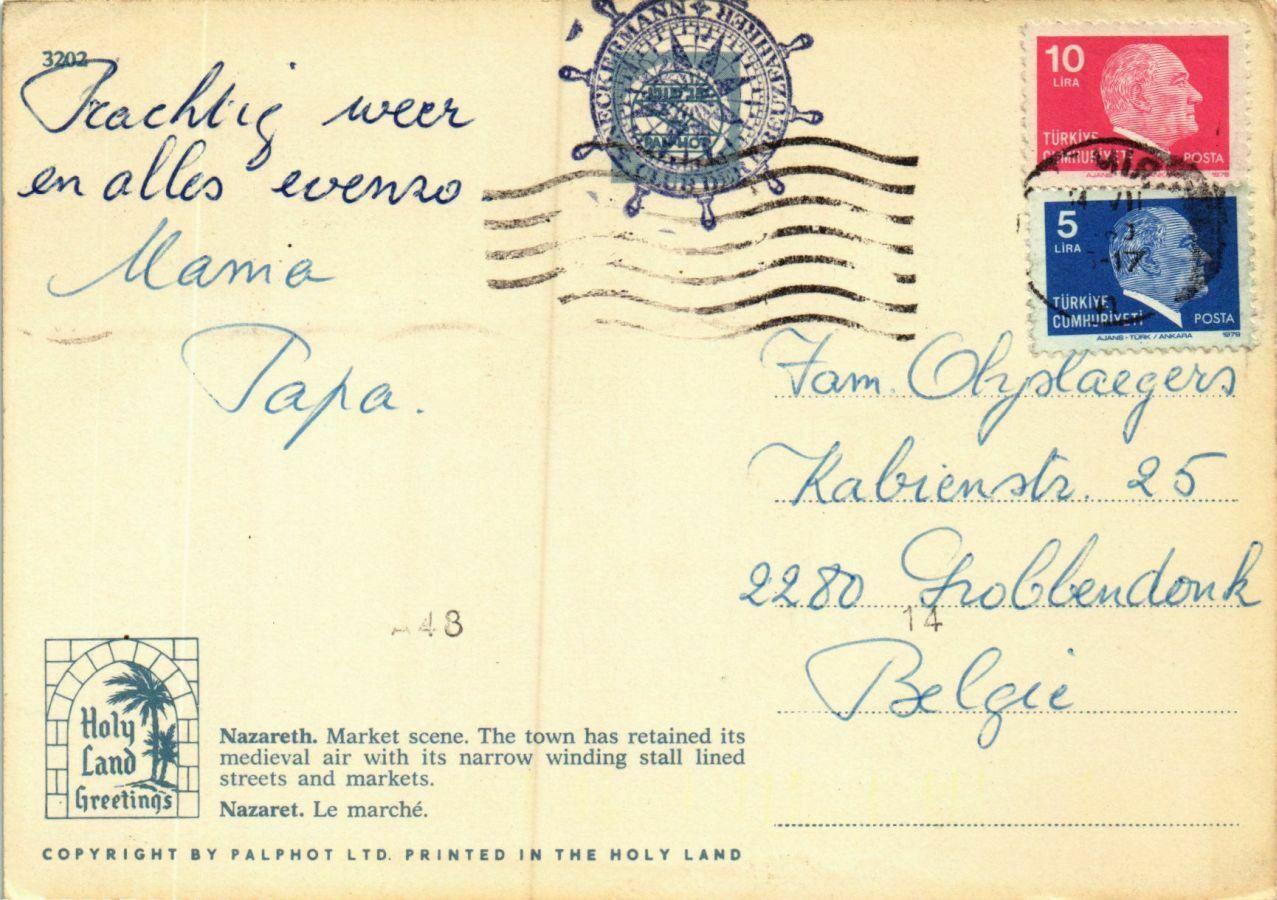 3202
Prachtig weer
en alles evenzo
Mama
Papa.
NECKERMANN
CLUB DER
PALPHOT
10
LIRA
TÜRKİYE
CUMHURİYETİ
POSTA
AJANS-TÜRK/ANKARA 1979
5
LIRA
TÜRKİYE
CUMHURİYETİ
POSTA
AJANS-TÜRK/ANKARA 1979
Fam.
Kabienstr. 25
2280 Grobbendonk
België
48
14
Holy
Land
Greetings
Nazareth. Market scene. The town has retained its
medieval air with its narrow winding stall lined
streets and markets.
Nazaret. Le marché.
COPYRIGHT BY PALPHOT LTD. PRINTED IN THE HOLY LAND